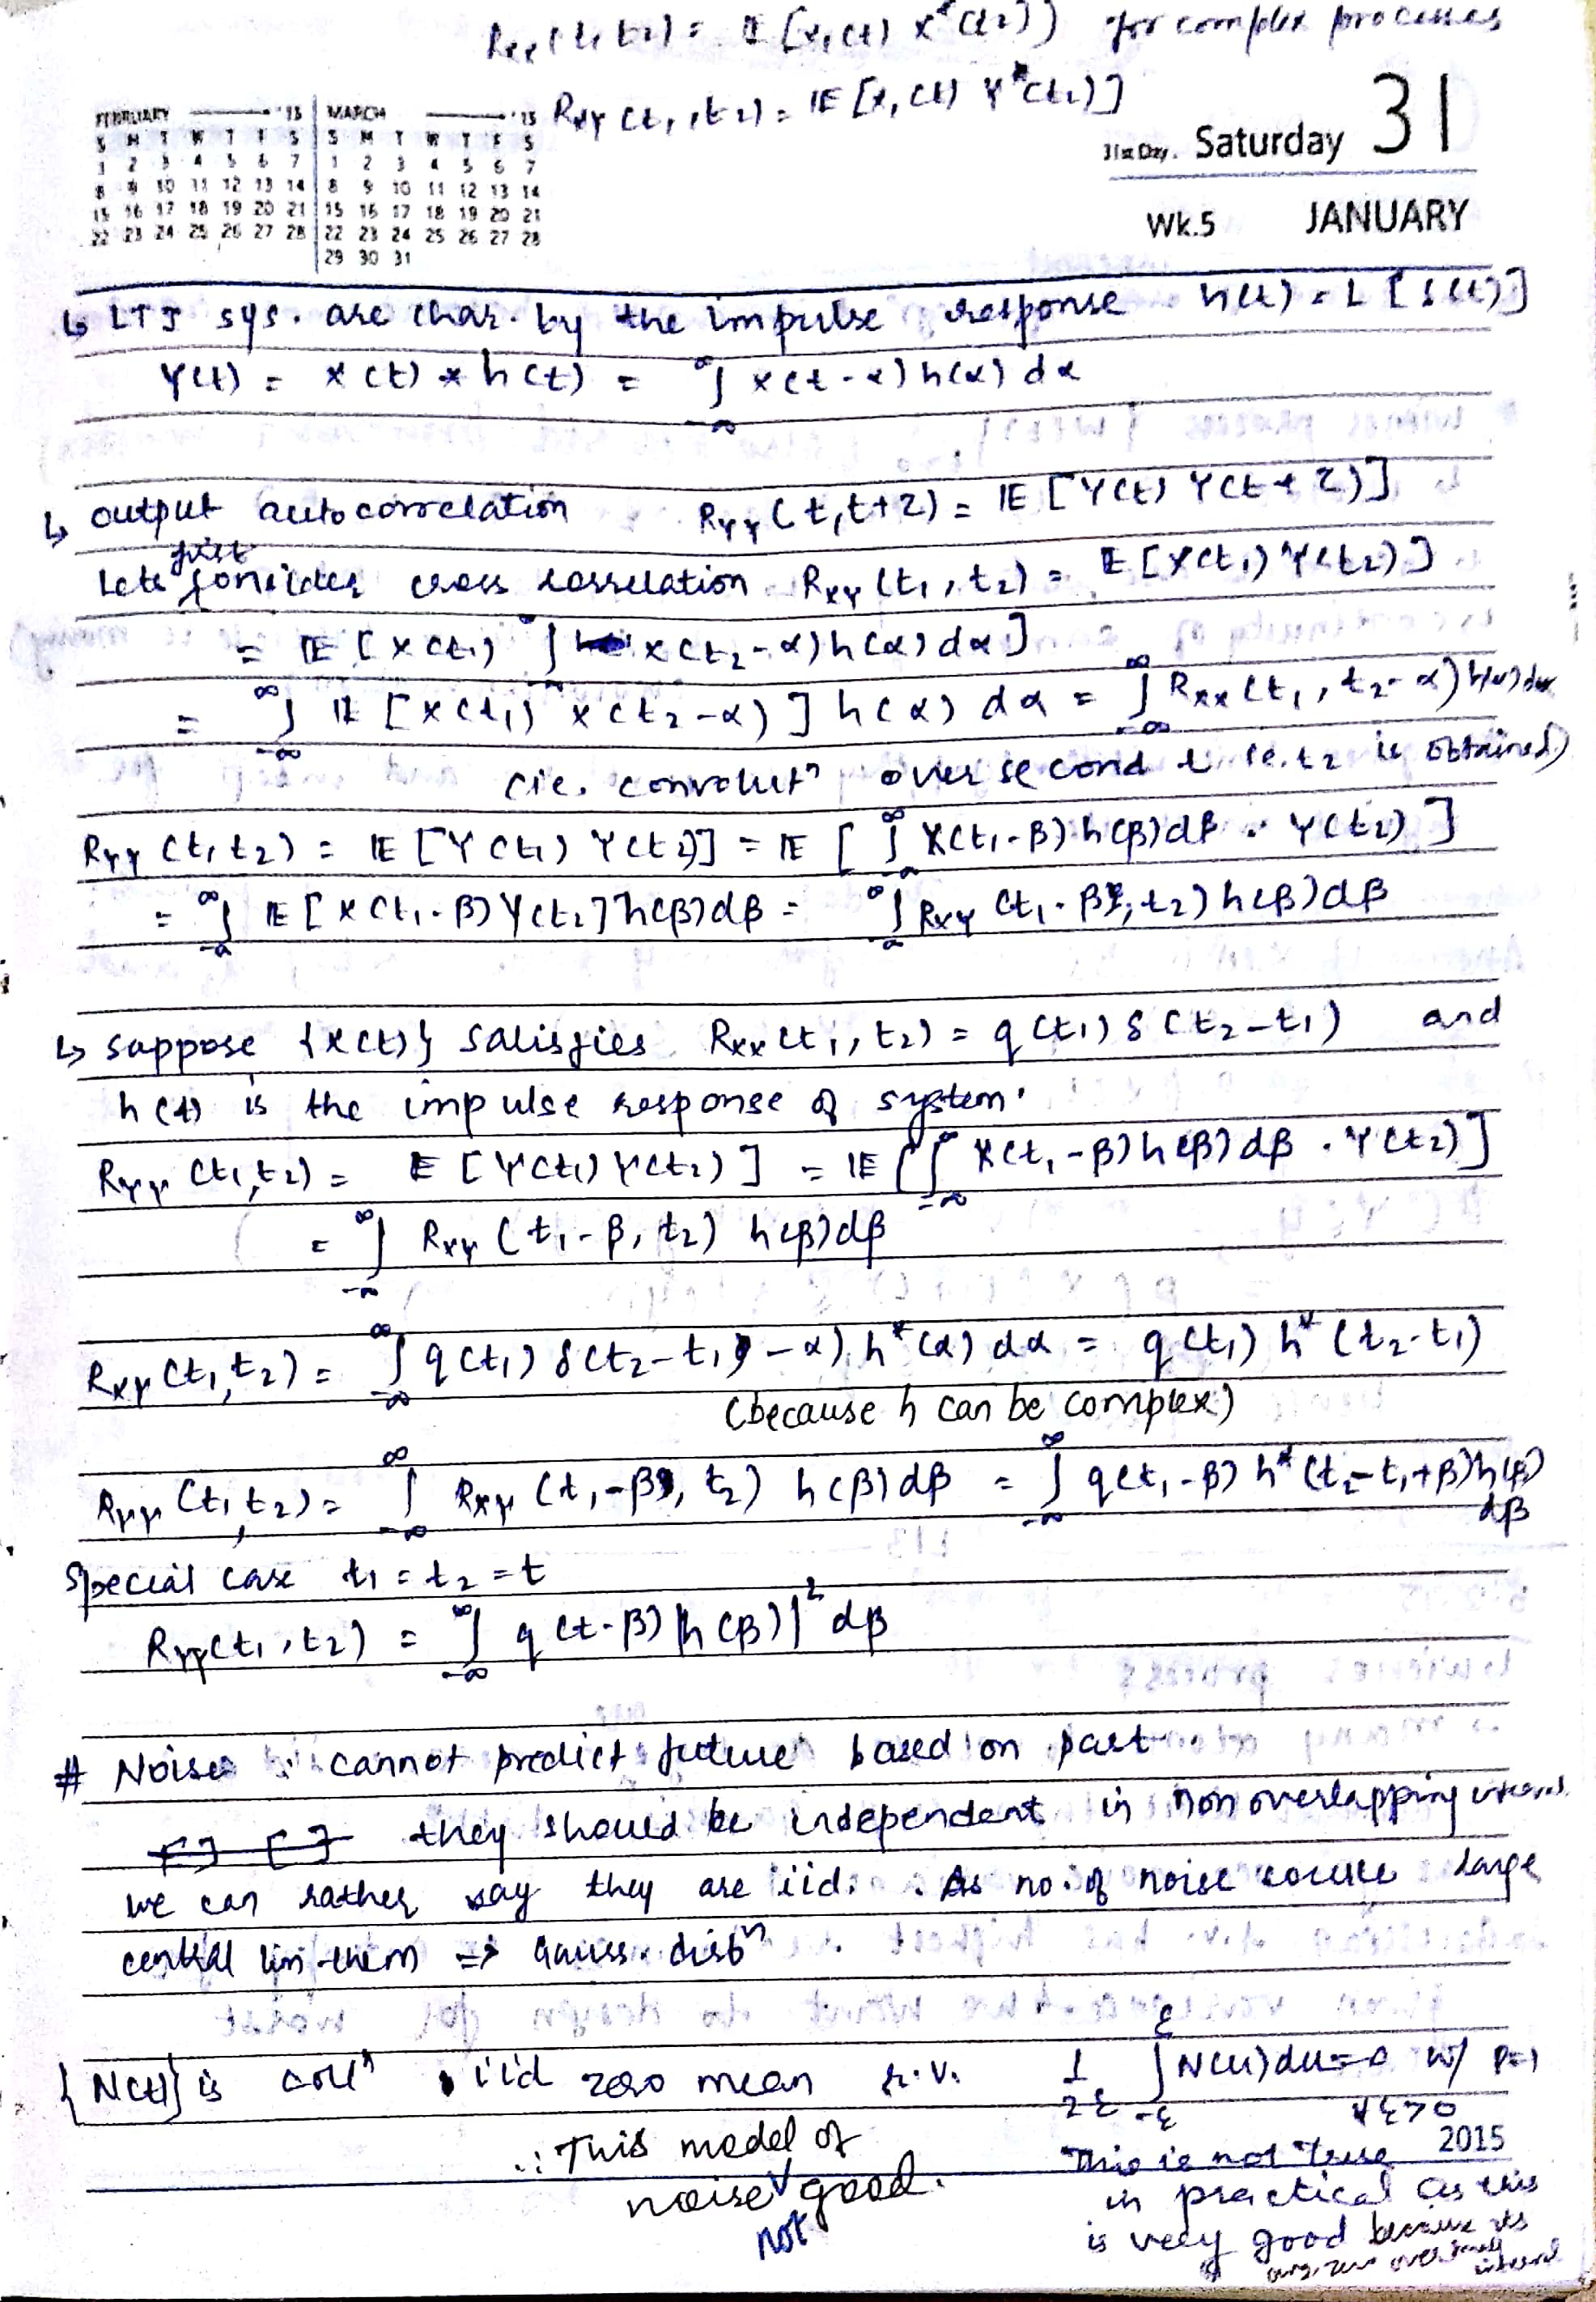 Rxx(t1 t2) = E [X1(t) X*(t2)) for complex processes
RXY (t1, t2) = E [X1(t) Y*(t2)]
FEBRUARY '15 MARCH '15
S M T W T F S S M T W T F S
1 2 3 4 5 6 7 1 2 3 4 5 6 7
8 9 10 11 12 13 14 8 9 10 11 12 13 14
15 16 17 18 19 20 21 15 16 17 18 19 20 21
22 23 24 25 26 27 28 22 23 24 25 26 27 28
29 30 31
31st Day. Saturday 31
Wk.5 JANUARY
↳ LTI sys. are char. by the impulse response h(t) = L [δ(t)]
Y(t) = X(t) * h(t) = ∫_{-∞}^{∞} X(t-α) h(α) dα
↳ output autocorrelation RYY (t, t+2) = E [Y(t) Y(t+2)]
Lets first consider cross correlation RXY (t1, t2) = E [X(t1) Y(t2)]
= E [X(t1) ∫ X(t2-α) h(α) dα]
= ∫_{-∞}^{∞} E [X(t1) X(t2-α)] h(α) dα = ∫_{-∞}^{∞} RXX (t1, t2-α) h(α) dα
(ie. convolutⁿ over second t ie. t2 is obtained)
RYY (t1 t2) = E [Y(t1) Y(t2)] = E [∫_{-∞}^{∞} X(t1-β) h(β) dβ . Y(t2)]
= ∫_{-∞}^{∞} E [X(t1-β) Y(t2] h(β) dβ = ∫_{-∞}^{∞} RXY (t1-β, t2) h(β) dβ
↳ suppose {X(t)} satisfies RXX (t1, t2) = q(t1) δ(t2-t1) and
h(t) is the impulse response of system.
RYY (t1, t2) = E [Y(t1) Y(t2)] = E [∫_{-∞}^{∞} X(t1-β) h(β) dβ . Y(t2)]
= ∫_{-∞}^{∞} RXY (t1-β, t2) h(β) dβ
RXY (t1, t2) = ∫_{-∞}^{∞} q(t1) δ(t2-t1-α) h*(α) dα = q(t1) h*(t2-t1)
(because h can be complex)
RYY (t1, t2) = ∫_{-∞}^{∞} RXY (t1-β, t2) h(β) dβ = ∫_{-∞}^{∞} q(t1-β) h*(t2-t1+β) h(β) dβ
Special case t1 = t2 = t
RYY(t1, t2) = ∫_{-∞}^{∞} q(t-β) |h(β)|² dβ
# Noise : cannot predict future based on past.
they should be independent in non overlapping interval
we can rather say they are iid. . As no. of noise source large
central lim them => Gauss. distⁿ
{N(t)} is collⁿ iid zero mean r.v. 1/2ε ∫_{-ε}^{ε} N(u) du = 0 w/ P=1
∀ ε>0
∴ This model of
noise not good.
2015
This is not true
in practical as this
is very good because its
avg. zero over small
interval